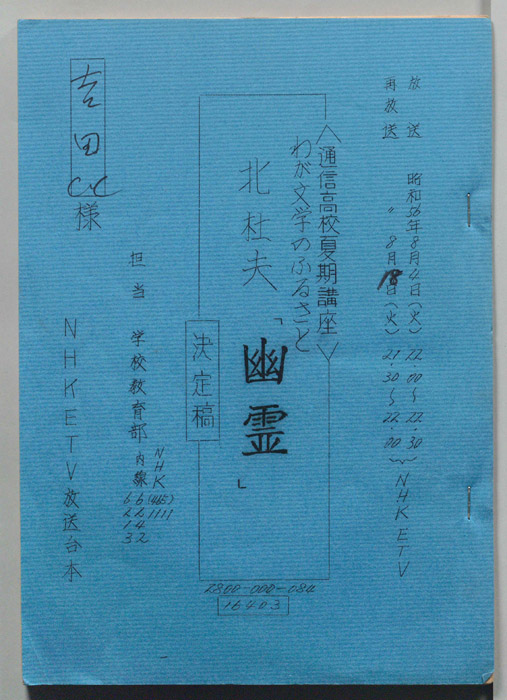 放送 昭和56年8月4日(火) 22.00〜22.30
再放送 〃 8月18日(火) 21.30〜22.00 } NHK ETV
<通信高校夏期講座>
わが文学のふるさと
北杜夫「幽霊」
決定稿
2800-000-084
16403
担当 学校教育部 内線
NHK
(465)
1111
吉田
様
NHK ETV 放送台本